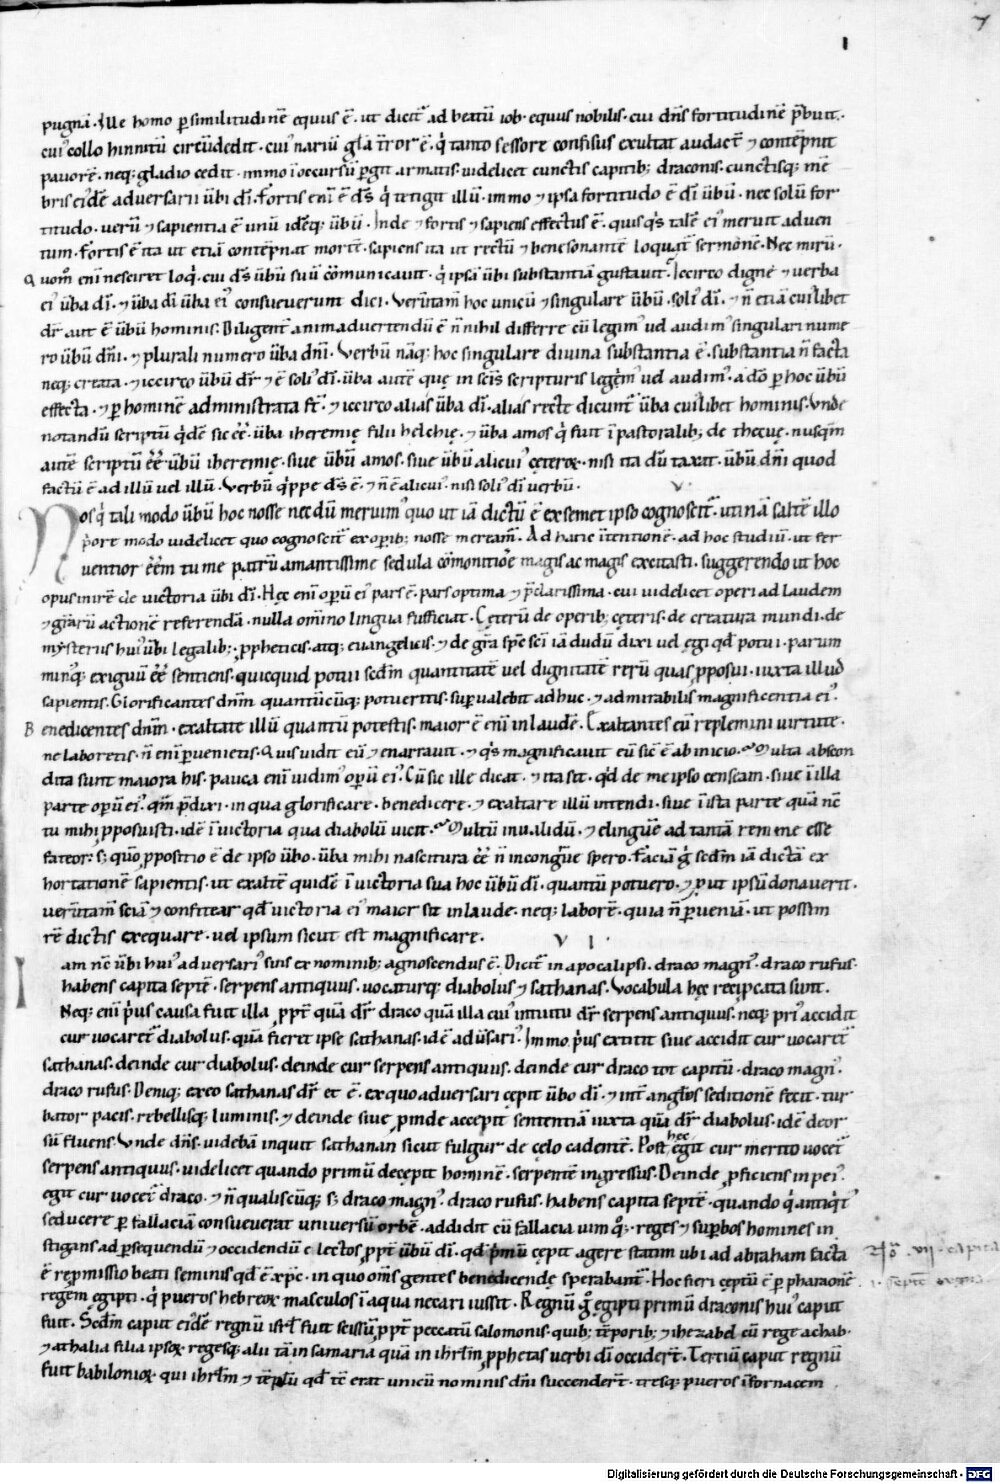 7
I
pugnā. Ille homo ꝑ similitudinē equus ē. ut dicit᷑ ad beatū iob. equus nobilis. cui dn̄s fortitudinē p̄buit.
cui᷒ collo hinnitū circūdedit. cui᷒ nariū gl̄a t̄ror ē. q̇ tanto sessore confisus exultat audact᷑ ⁊ contēpnit
pauorē. neq; gladio cedit. immo ī occursū ꝑgit armatis. uidelicet cunctis capitib; draconis. cunctisq; mē
bris ei᷒dē aduersarii ūbi dī. Fortis enī ē d̄s q̇ tetigit illū. immo ⁊ ipsa fortitudo ē dī ūbū. nec solū for
titudo. uerū ⁊ sapientia ē unū idēq; ūbū. Inde ⁊ fortis ⁊ sapiens effectus ē. quisq̇s talē ei᷒ meruit aduen
tum. fortis ē ita ut etiā contēpnat mortē. sapiens ita ut rectū ⁊ benesonantē loquat᷑ sermonē. Nec mirū.
Quom̄ enī nesciret loq̇. cui d̄s ūbū suū cōmunicauit. q̇ ipsā ūbi substantiā gustauit. Iccirco digne ⁊ uerba
ei᷒ ūba dī. ⁊ ūba dī ūba ei᷒ consueuerunt dici. Verūtam̄ hoc unicū ⁊ singulare ūbū. soli᷒ dī. ⁊ n̄ etiā cui᷒libet
dr̄ aut ē ūbū hominis. Diligent᷑ animaduertendū ē n̄ nihil differre cū legim᷒ ud audim᷒ singulari nume
ro ūbū dn̄i. ⁊ plurali numero ūba dn̄i. Verbū nāq; hoc singulare diuina substantia ē. substantia n̄ facta
neq; creata. ⁊ iccirco ūbū dr̄ ⁊ ē soli᷒ dī. ūba autē quę in sc̄is scripturis legim᷒ ud audim᷒. a dō ꝑ hoc ūbū
effecta. ⁊ ꝑ hominē administrata st̄. ⁊ iccirco alias ūba dī. alias recte dicunt᷑ ūba cui᷒libet hominis. Vnde
notandū scriptū q̇dē sic ēē. ūba iheremię filii helchię. ⁊ ūba amos q̇ fuit ī pastoralib; de thecue. nusq̄m
autē scriptū ēē ūbū iheremię. siue ūbū amos. siue ūbū alicui᷒ ceteroꝝ. nisi ita dū taxit. ūbū dn̄i quod
factū ē ad illū uel illū. Verbū q̇ppe d̄s ē. ⁊ n̄ ē alicui᷒. nisi soli᷒ dī uerbū.
v.
Nosq̇ tali modo ūbū hoc nosse necdū meruim᷒ quo ut iā dictū ē ex semet ipso cognoscit᷑. utinā saltē illo
p̄ore modo uidelicet quo cognoscit᷑ ex oꝑib; nosse meream᷑. Ad hanc ītentionē. ad hoc studiū. ut fer
uentior ēēm tu me patrū amantissime sedula cōmonitiōe magis ac magis excitasti. suggerendo ut hoc
opus inirē de uictoria ūbi dī. Hęc enī oꝑū ei᷒ pars ē. pars optima ⁊ p̄clarissima. cui uidelicet operi ad laudem
⁊ gr̄arū actionē referendā. nulla om̄ino lingua sufficiat. Cęterū de operib; cęteris. de creatura mundi. de
mysteriis hui᷒ ūbi legalib;. ꝓpheticis. atq; euangelicis. ⁊ de gr̄a sp̄c sc̄i iā dudū dixi uel ęgi qd̄ potui. parum
min᷒q; exiguū ēē sentiens. quicquid potui scd̄m quantitatē uel dignitatē rerū quas ꝓposui. iuxta illud
sapientis. Glorificantes dn̄m. quantūcūq; potueritis. suꝑualebit adhuc. ⁊ admirabilis magnificentia ei᷒.
Benedicentes dn̄m. exaltate illū quantū potestis. maior ē enī in laudē. Exaltantes eū replemini uirtute.
ne laboretis. n̄ enī ꝑuenietis. Quis uidit eū ⁊ enarrauit. ⁊ q̇s magnificauit eū sic ē ab inicio. Multa abscon
dita sunt maiora his. pauca enī uidim᷒ oꝑū ei᷒. Cū sic ille dicat. ⁊ ita sit. qd̄ de me ipso censeam. siue ī illa
parte oꝑū ei᷒. qm̄ p̄dixi. in qua glorificare. benedicere. ⁊ exaltare illū intendi. siue ī ista parte quā nc̄
tu mihi ꝓposuisti. idē ī uictoria qua diabolū uicit. Multū inualidū. ⁊ elinguē ad tantā rem me esse
fateor. s; quō ꝓpositio ē de ipso ūbo. ūba mihi nascitura ēē n̄ incongrue spero. Faciā g̊ scd̄m iā dictā ex
hortationē sapientis. ut exaltē quidē ī uictoria sua hoc ūbū dī. quantū potuero. ⁊ ꝓut ipsū donauerit.
uerūtam̄ sciā ⁊ confitear qd̄ uictoria ei᷒ maior sit in laude. neq; laborē. quia n̄ ꝑueniā. ut possim
rē dictis exequare. uel ipsum sicut est magnificare.
VI.
Iam nc̄ ūbi hui᷒ aduersari᷒ suis ex nominib; agnoscendus ē. Dicit᷑ in apocalipsi. draco magn᷒. draco rufus.
habens capita septē. serpens antiquus. uocaturq; diabolus ⁊ sathanas. Vocabula hęc recipcata sunt.
Neq; enī p̄us causa fuit illa. ꝓpt᷑ quā dr̄ draco quā illa cui᷒ intuitu dr̄ serpens antiquus. neq; pri᷒ accidit
cur uocaret᷑ diabolus. quā fieret ipse sathanas. idē adūsari᷒. Immo p̄us extitit siue accidit cur uocaret᷑
sathanas. deinde cur diabolus. deinde cur serpens antiquus. deinde cur draco tot capitū. draco magn᷒.
draco rufus. Deniq; ex eo sathanas dr̄ et ē. ex quo aduersari cępit ūbo dī. ⁊ int᷑ angl̄os seditionē fecit. tur
bator pacis. rebellisq; luminis. ⁊ deinde siue ꝓinde accepit sententiā iuxta quā dr̄ diabolus. idē deor
sū fluens. Vnde dn̄s. uidebā inquit sathanan sicut fulgur de cęlo cadentē. Post hęc egit cur merito uocet᷑
serpens antiquus. uidelicet quando primū decępit hominē. serpentē ingressus. Deinde ꝓficiens in pei᷒
egit cur uocet᷑ draco. ⁊ n̄ qualiscūq; s; draco magn᷒. draco rufus. habens capita septē. quando q̇ antiq̇t᷒
seducere ꝑ fallaciā consueuerat uniuersū orbē. addidit cū fallacia uim q̊;. reges ⁊ suꝑbos homines in
stigans ad ꝑsequendū ⁊ occidendū electos ꝓpt᷑ ūbū dī. qd̄ p̄mū cępit agere statim ubi ad abraham facta
ē repmissio beati seminis qd̄ ē xp̄c. in quo om̄s gentes benedicendę sperabant᷑. Hoc fieri ceptū ē ꝑ pharaonē.
regem ęgipti. q̇ pueros hebreoꝝ masculos ī aqua necari iussit. Regnū g̊ ęgipti primū draconis hui᷒ caput
fuit. Scd̄m caput ei᷒dē regnū isrl̄ fuit scissū ꝓpt᷑ peccatū salomonis. quib; tēporib; ⁊ ihezabel cū rege achab.
⁊ athalia filia ipsoꝝ. regesq; alii tā in samaria quā in ihrl̄m ꝓphetas uerbi dī occider̄t. Tertiū caput regnū
fuit babilonioꝝ. qui ihrl̄m ⁊ tēplū qd̄ tē erat unicū nominis dn̄i succender̄t. tresq; pueros ī fornacem
.vii. capita
Digitalisierung gefördert durch die Deutsche Forschungsgemeinschaft - DFG